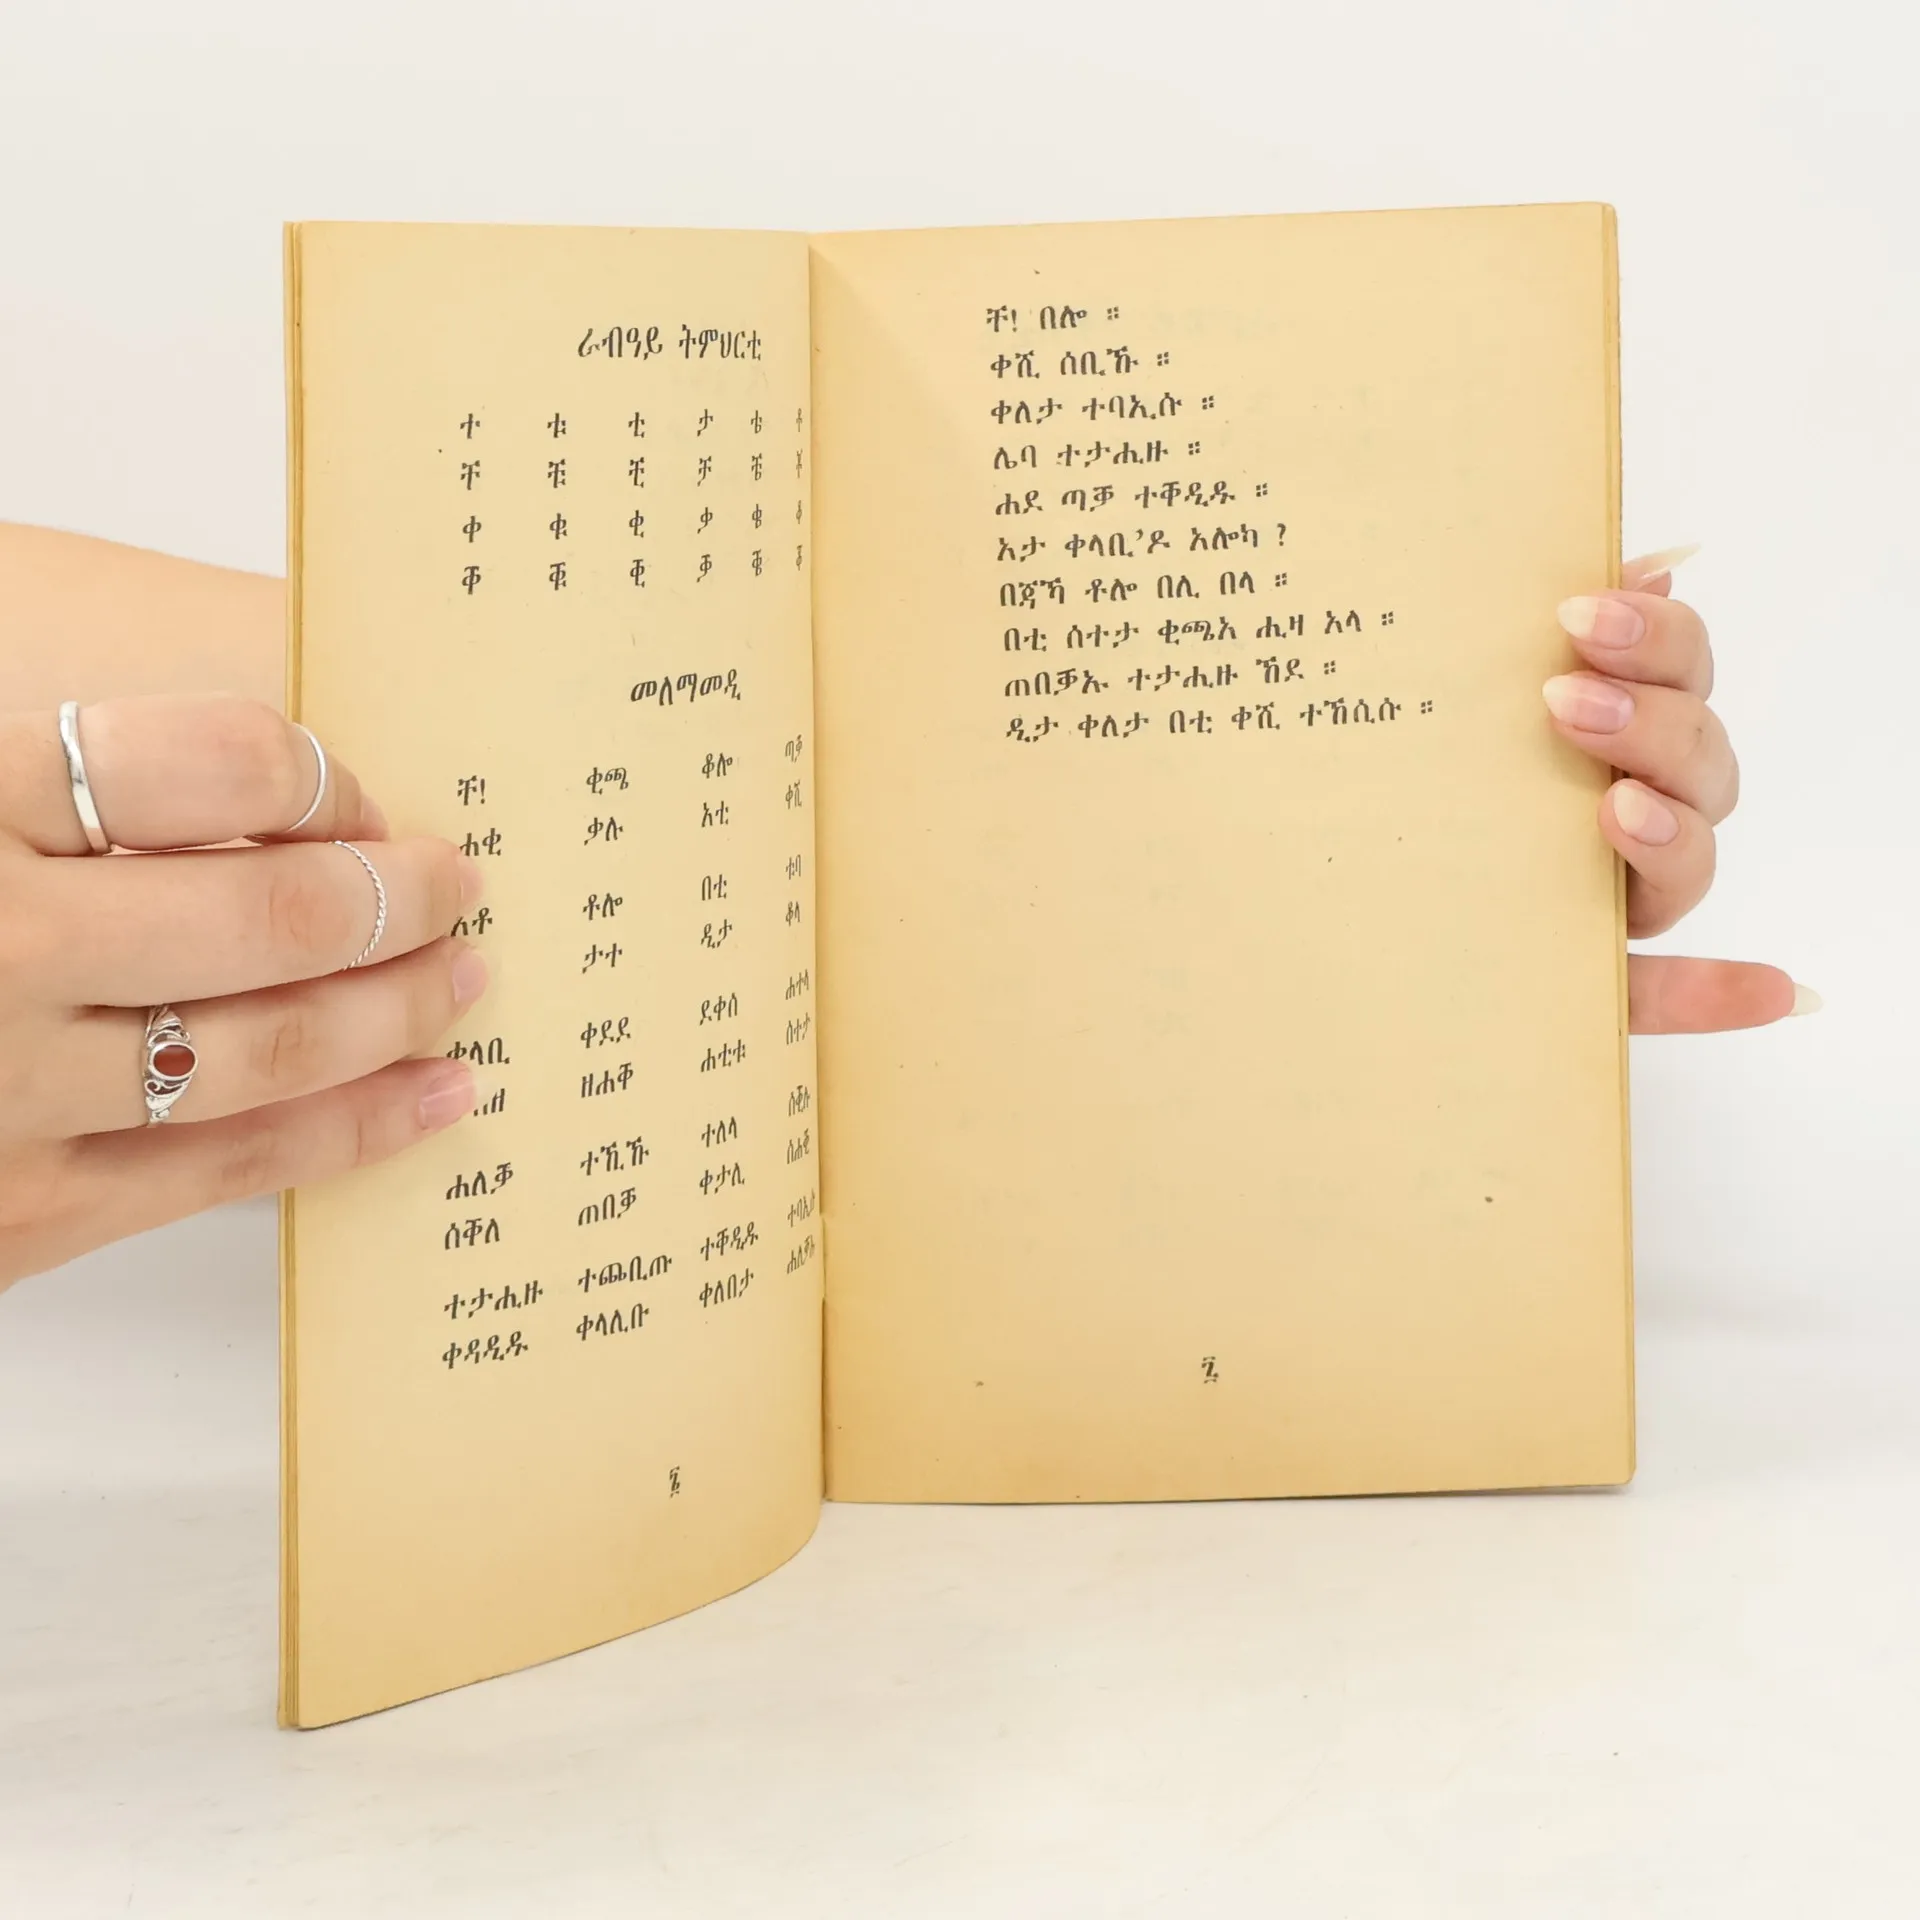 ራብዓይ ትምህርቲ
ተ ቱ ቲ ታ ቴ ቶ
ቸ ቹ ቺ ቻ ቼ ቾ
ቀ ቁ ቂ ቃ ቄ ቆ
ቐ ቑ ቒ ቓ ቔ ቖ
መለማመዲ
ቸ! ቂጫ ቆሎ ጣቓ
ሐቂ ቃሉ አቲ ቀሺ
አቶ ቶሎ በቲ ቱባ
ታተ ዲታ ቆላ
ቀላቢ ቀደደ ደቀሰ ሐተላ
ዘሐቐ ሐቲቱ ሰተታ
ሐለቓ ተኺኹ ተለላ
ሰቐለ ጠበቓ ቀታሊ
ተታሒዙ ተጨቢጡ ተቐዲዱ ተባኢሱ
ቀዳዲዱ ቀላሊቡ ቀለበታ
፮
ቸ! በሎ ።
ቀሺ ሰቢኹ ።
ቀለታ ተባኢሱ ።
ሌባ ተታሒዙ ።
ሐደ ጣቓ ተቐዲዱ ።
አታ ቀላቢ’ዶ አሎካ ?
በጃኻ ቶሎ በሊ በላ ።
በቲ ሰተታ ቂጫአ ሒዛ አላ ።
ጠበቓኡ ተታሒዙ ኸደ ።
ዲታ ቀለታ በቲ ቀሺ ተኸሲሱ ።
፯